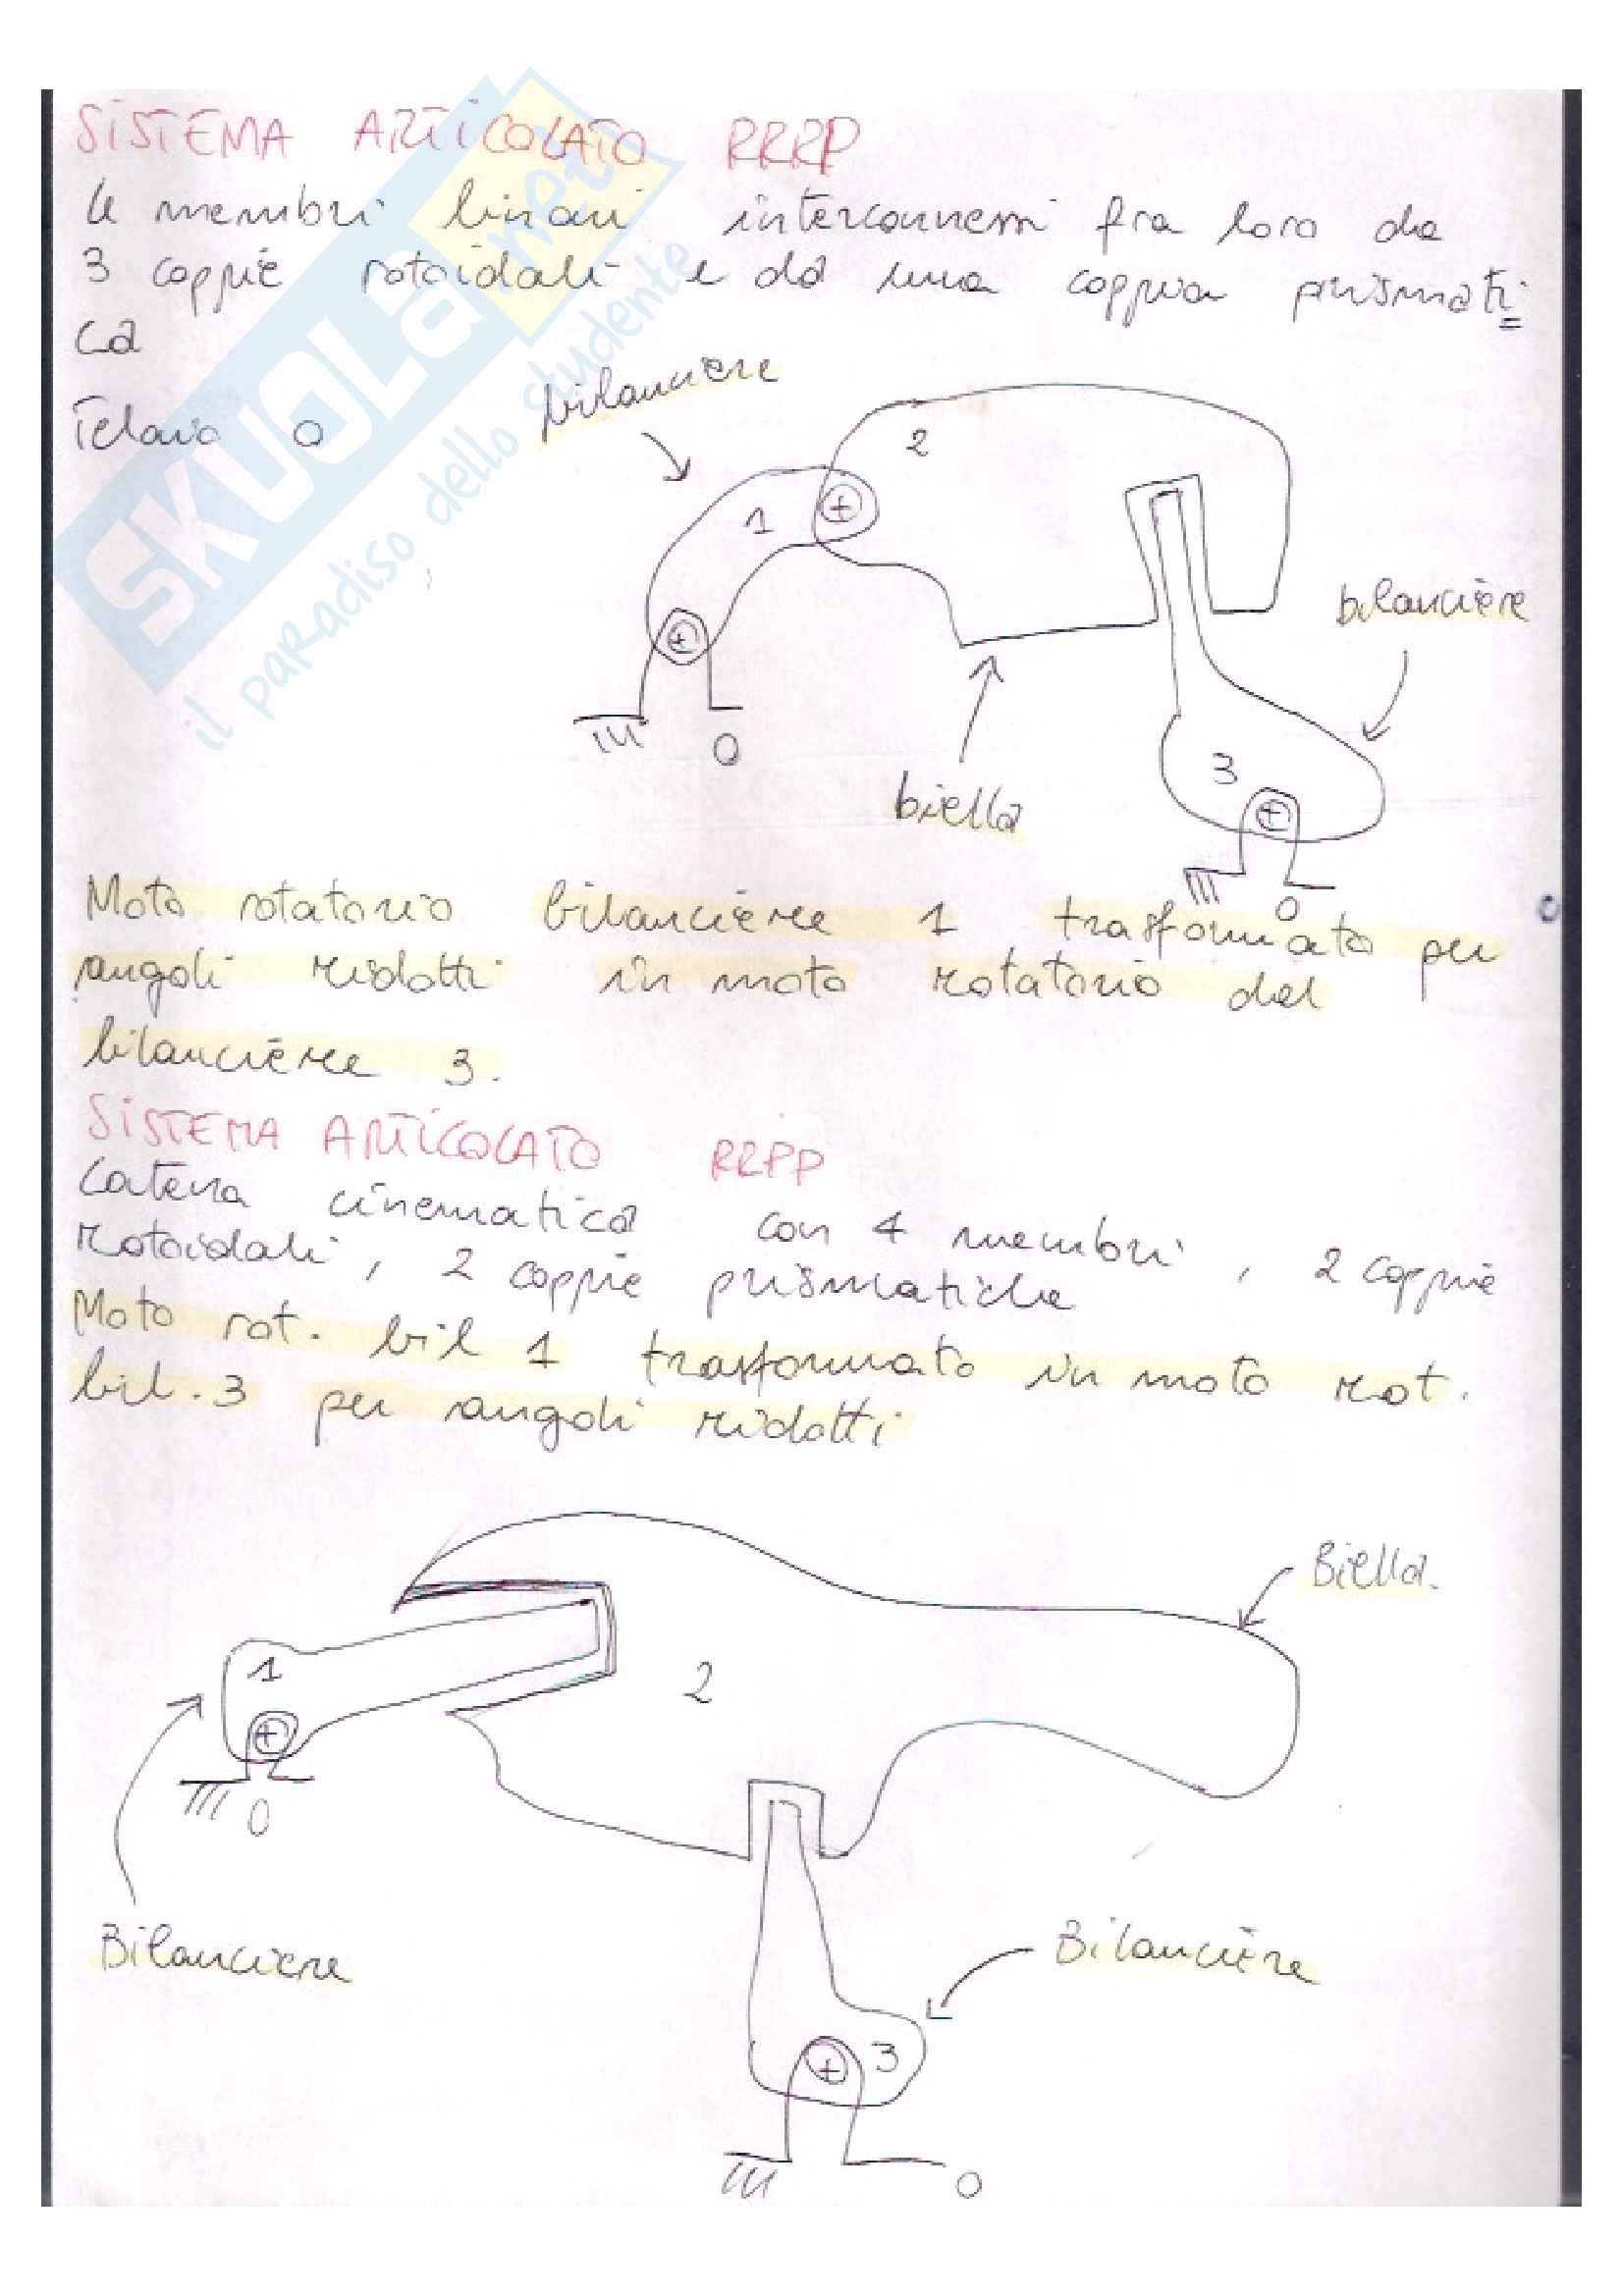 SISTEMA ARTICOLATO RRRP
4 membri binari interconnessi fra loro da
3 coppie rotoidali e da una coppia prismati=
ca
Telaio 0
bilanciere
2
1
bilanciere
0
biella
3
0
Moto rotatorio bilanciere 1 trasformato per
angoli ridotti in moto rotatorio del
bilanciere 3.
SISTEMA ARTICOLATO RRPP
Catena cinematica con 4 membri, 2 coppie
rotoidali, 2 coppie prismatiche
Moto rot. bil 1 trasformato in moto rot.
bil. 3 per angoli ridotti
Biella.
1
2
0
Bilanciere
Bilanciere
3
0
SKUOLA.net
il paradiso dello studente